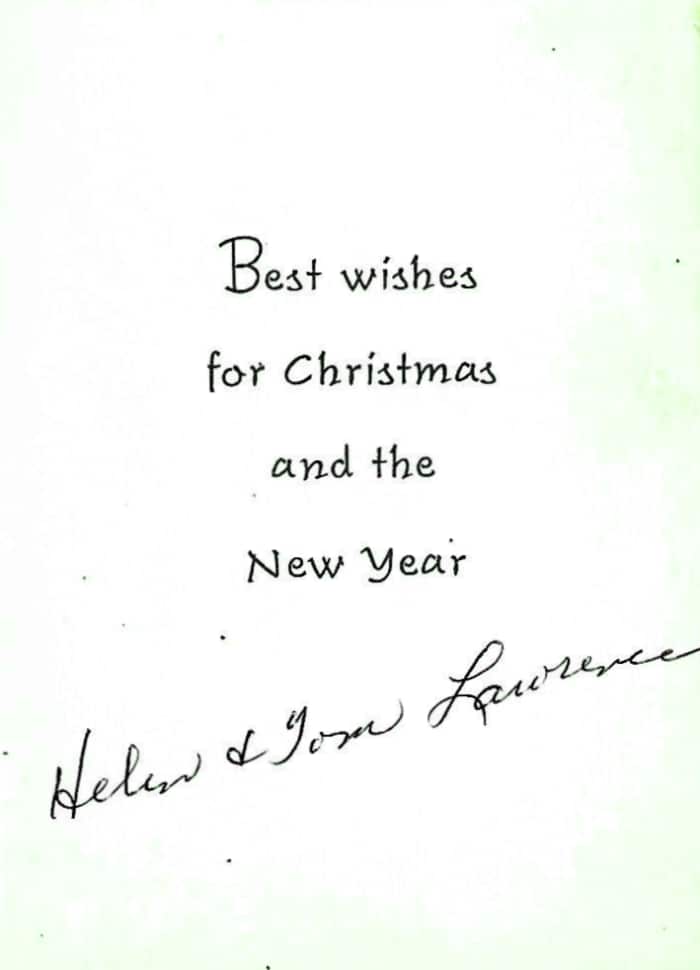 Best wishes
for Christmas
and the
New Year
Helen & Tom Lawrence